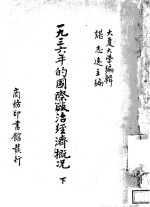 大夏大學編輯
諶志遠主編
一九三六年的國際政治經濟概況 下
商務印書館發行